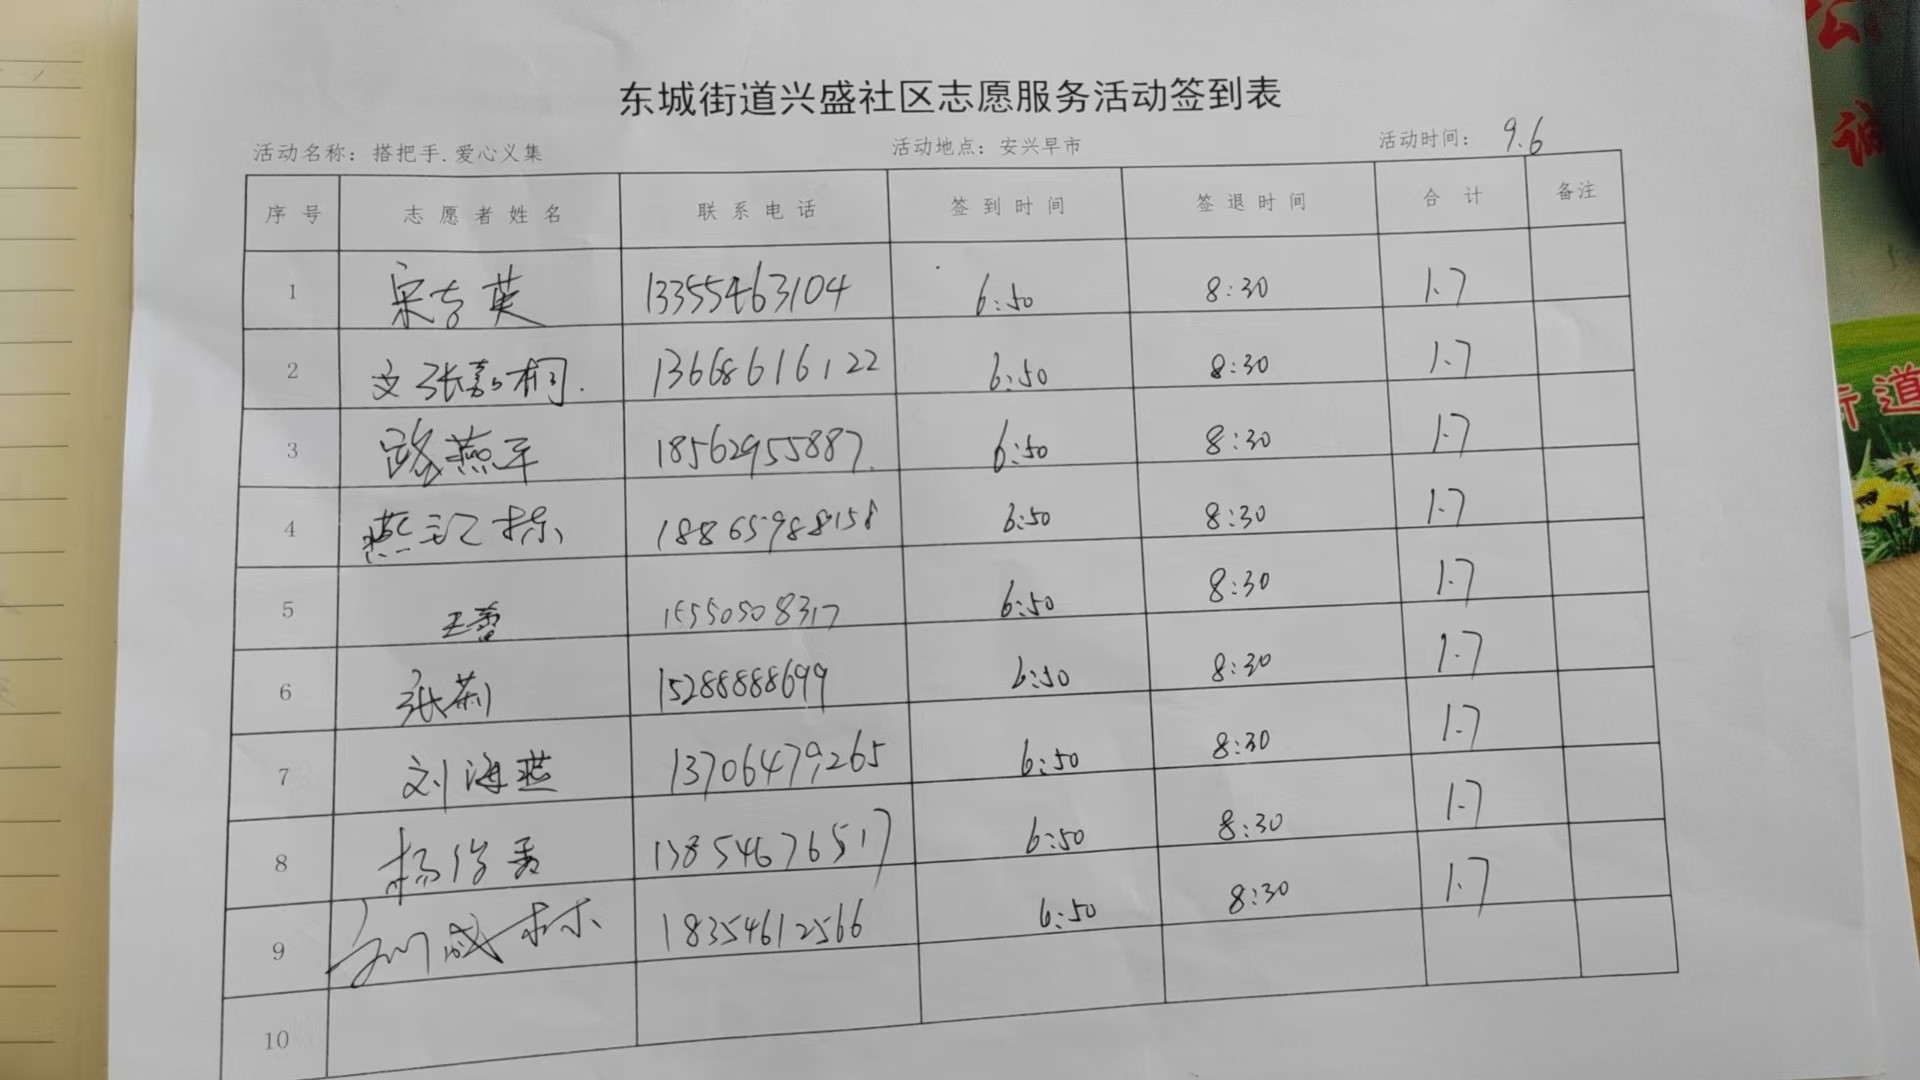 东城街道兴盛社区志愿服务活动签到表
活动名称：搭把手.爱心义集 活动地点：安兴早市 活动时间：9.6
序号 志愿者姓名 联系电话 签到时间 签退时间 合计 备注
1 宋吉英 13355463104 6:50 8:30 1.7
2 文张嘉桐. 13668616122 6:50 8:30 1.7
3 路燕平 18562955887. 6:50 8:30 1.7
4 燕 18865988158 6:50 8:30 1.7
5 王蕾 15550508317 6:50 8:30 1.7
6 张莉 15288888699 6:50 8:30 1.7
7 刘海燕 13706479265 6:50 8:30 1.7
8 杨 13854676517 6:50 8:30 1.7
9 刘成林 18354612566 6:50 8:30 1.7
10
街道